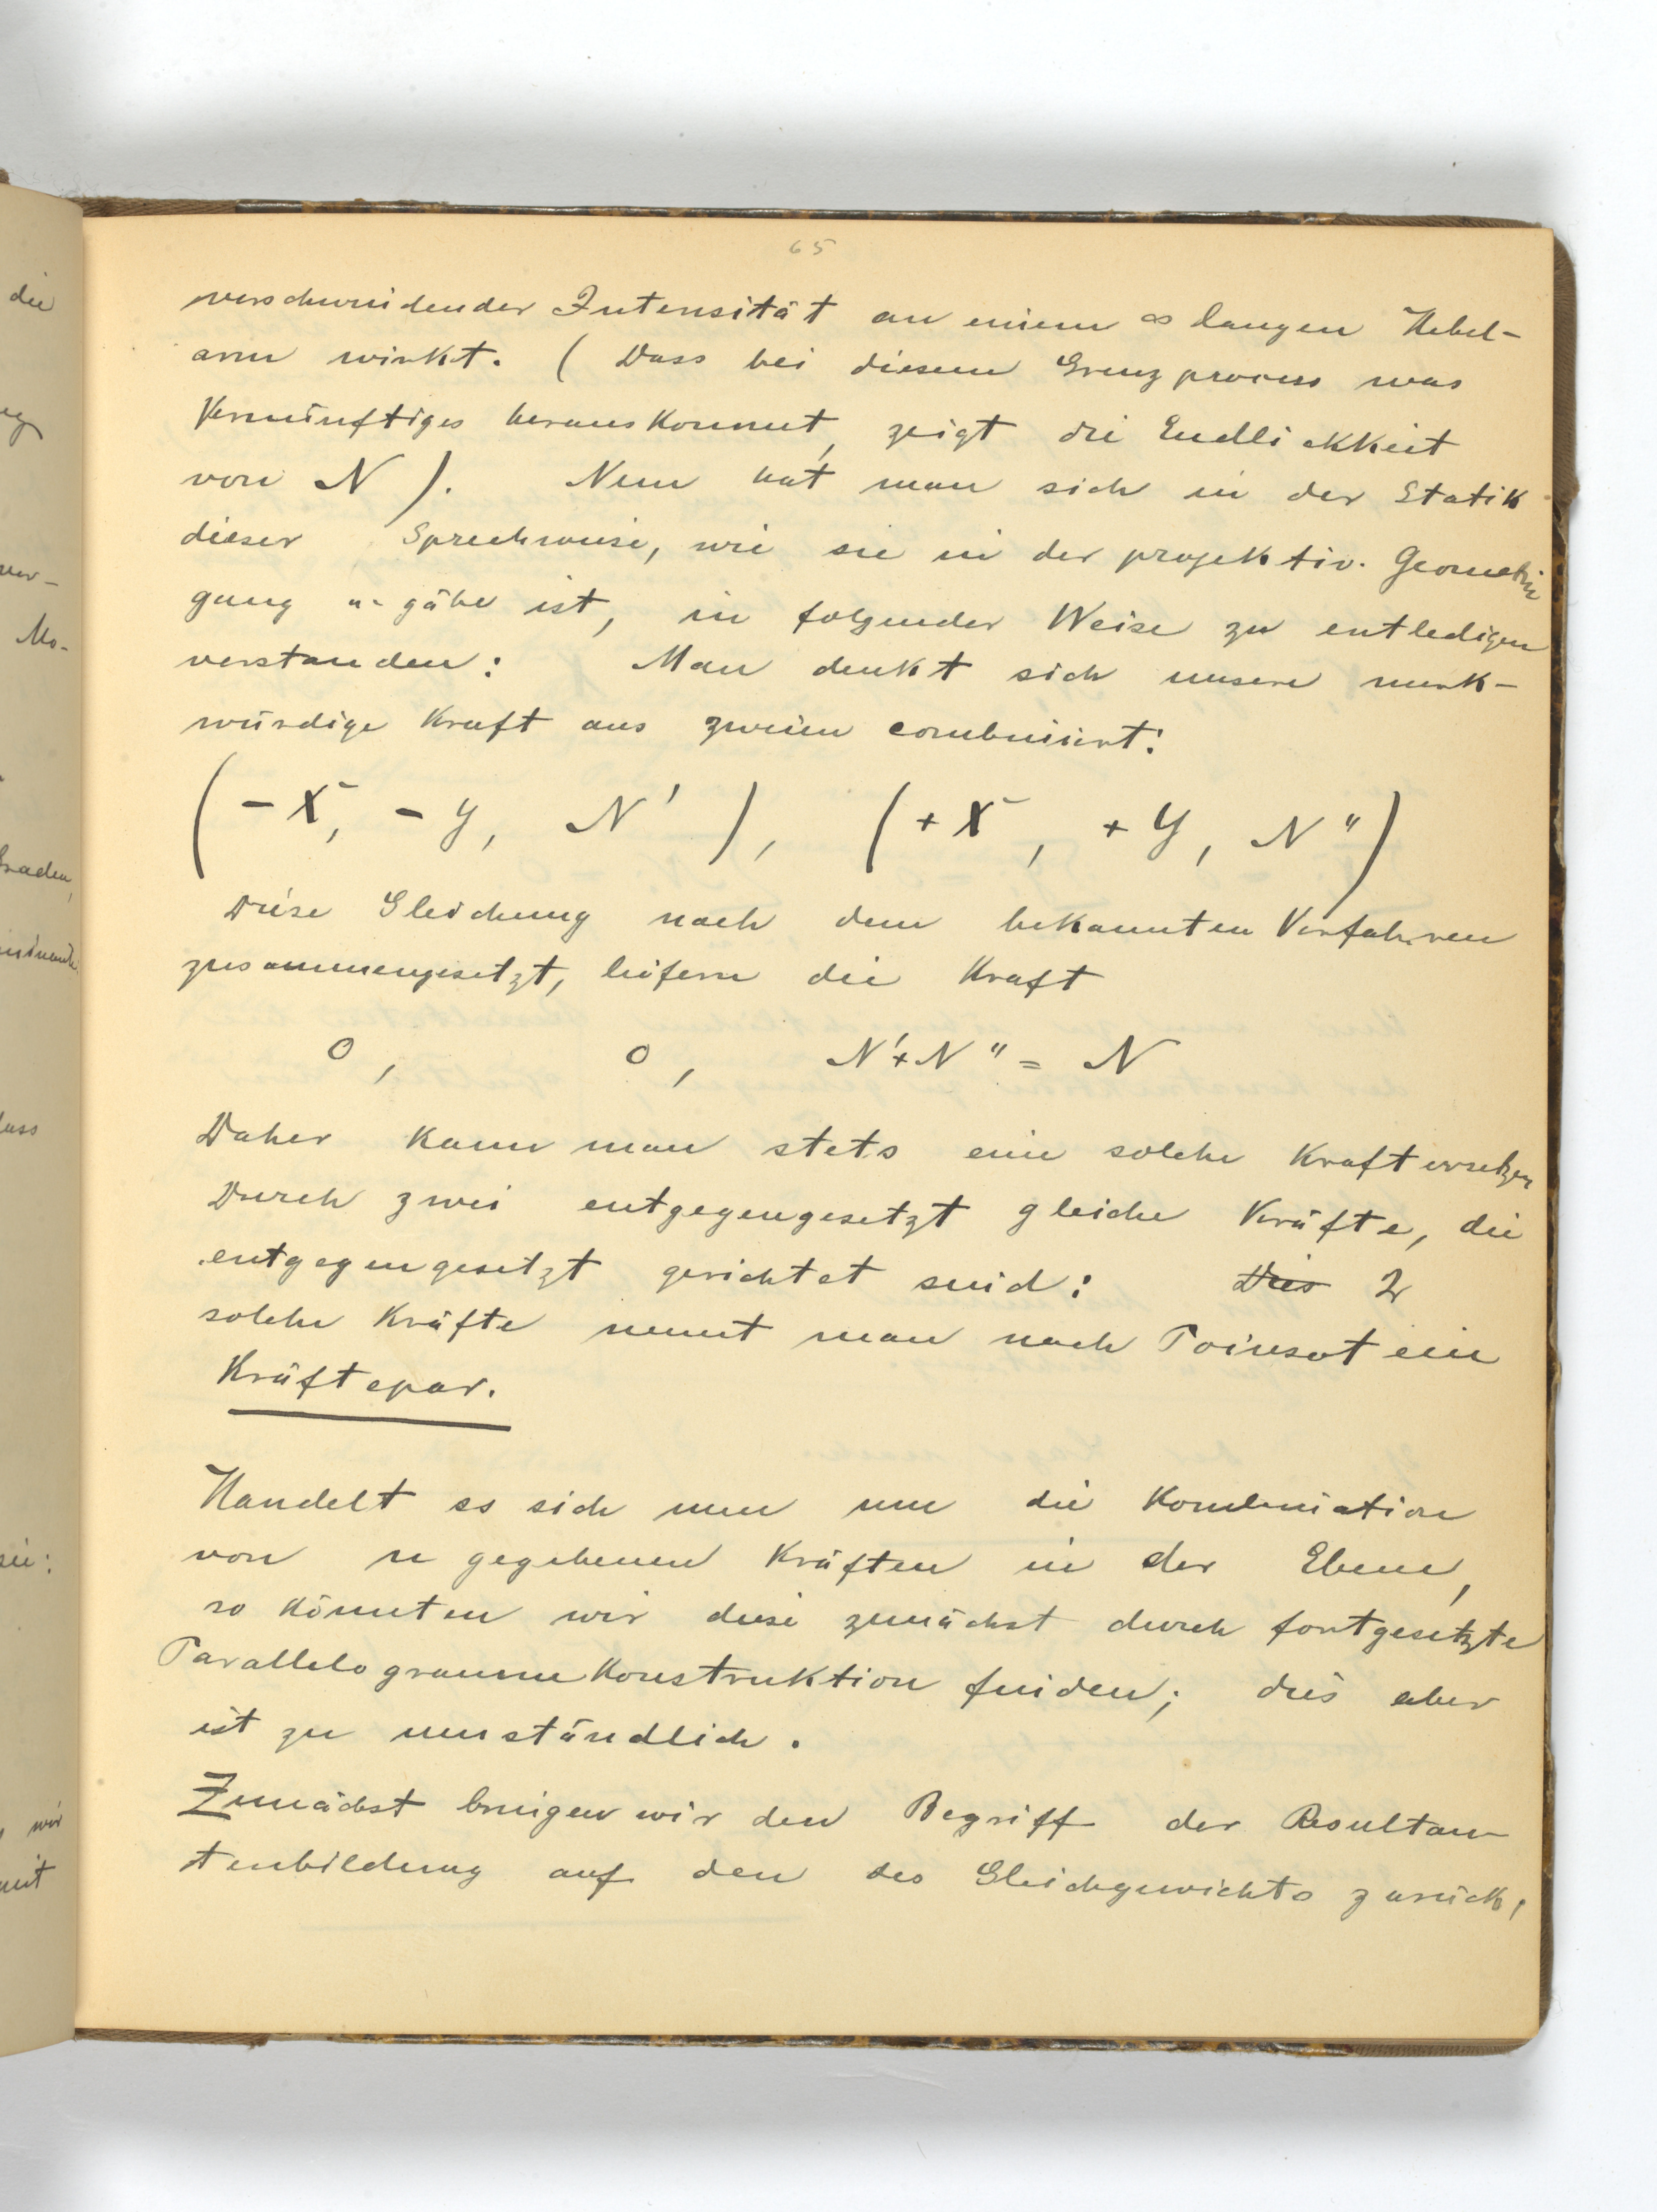 65
verschwindender Intensität an einem ∞ langen Hebel-
arm wirkt. ( Dass bei diesem Grenzprocess was
Vernünftiges herauskommt, zeigt die Endlichkeit
von N ). Nun hat man sich in der Statik
dieser Sprechweise, wie sie in der projektiv. Geometrie
gang u. gäbe ist, in folgender Weise zu entledigen
verstanden: Man denkt sich unsere merk-
würdige Kraft aus zweien combiniert:
(-X, -Y, N' ), (+X, +Y, N")
Diese Gleichung nach dem bekannten Verfahren
zusammengesetzt, liefern die Kraft
0, 0, N'+N" = N
Daher kann man stets eine solche Kraft ersetzen
Durch zwei entgegengesetzt gleiche Kräfte, die
entgegengesetzt gerichtet sind: Dies 2
solche Kräfte nennt man nach Poinsot ein
Kräftepar.
Handelt es sich nun um die Kombination
von n gegebenen Kräften in der Ebene,
so könnten wir diese zunächst durch fortgesetzte
Parallelogrammkonstruktion finden; dies aber
ist zu umständlich.
Zunächst bringen wir den Begriff der Resultan-
tenbildung auf den des Gleichgewichts zurück,
die
ver-
Mo-
Graden,
dass
sie:
, wir
mit